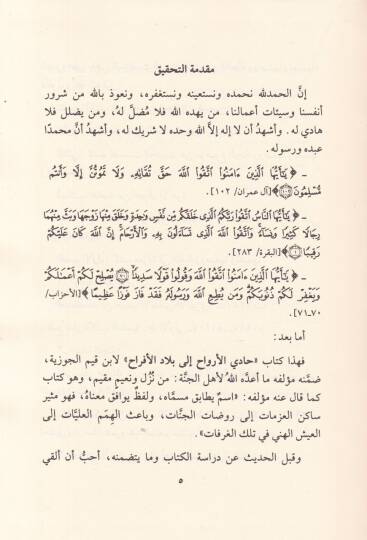 مقدمة التحقيق
إنَّ الحمدلله نحمده ونستعينه ونستغفره، ونعوذ بالله من شرور
أنفسنا وسيئات أعمالنا، من يهده الله فلا مُضلَّ لهُ، ومن يضلل فلا
هادي له. وأشهدُ أن لا إله إلاَّ الله وحده لا شريك له، وأشهدُ أنَّ محمدًا
عبده ورسوله.
ـ ﴿ يَتَأَيُّهَا الَّذِينَ ءَامَنُوا اتَّقُوا اللَّهَ حَقَّ تُقَالِهِ وَلَا تَمُوتُنَّ إِلَّا وَأَنتُم
مُّسْلِمُونَ ﴿١٠٢﴾ [آل عمران/ ١٠٢].
ـ ﴿ يَتَأَيُّهَا النَّاسُ اتَّقُوا رَبَّكُمُ الَّذِى خَلَقَكُم مِّن نَّفْسٍ وَحِدَةٍ وَخَلَقَ مِنْهَا زَوْجَهَا وَبَثَّ مِنْهُمَا
رِجَالًا كَثِيرًا وَنِسَآءً وَاتَّقُوا اللَّهَ الَّذِى تَسَآءَلُونَ بِهِ وَالْأَرْحَامَ إِنَّ اللَّهَ كَانَ عَلَيْكُمْ
رَقِيبًا ﴿١﴾ [البقرة/ ٢٨٣].
ـ ﴿ يَتَأَيُّهَا الَّذِينَ ءَامَنُوا اتَّقُوا اللَّهَ وَقُولُوا قَوْلًا سَدِيدًا ﴿٧٠﴾ يُصْلِحْ لَكُمْ أَعْمَلَكُمْ
وَيَغْفِرْ لَكُمْ ذُنُوبَكُمْ وَمَن يُطِعِ اللَّهَ وَرَسُولَهُ فَقَدْ فَازَ فَوْزًا عَظِيمًا ﴾ [الأحزاب/
٧٠ـ٧١].
أما بعد:
فهذا كتاب «حادي الأرواح إلى بلاد الأفراح» لابن قيم الجوزية،
ضمَّنه مؤلفه ما أعدَّه اللهُ لأهل الجنَّة: من نُزُل ونعيم مقيم، وهو كتاب
كما قال عنه مؤلفه: «اسمٌ يطابق مسمَّاه، ولفظٌ يوافق معناهُ، فهو مثير
ساكن العزمات إلى روضات الجنَّات، وباعث الهِمَم العليَّات إلى
العيش الهني في تلك الغرفات».
وقبل الحديث عن دراسة الكتاب وما يتضمنه، أحبُّ أن ألقي
٥